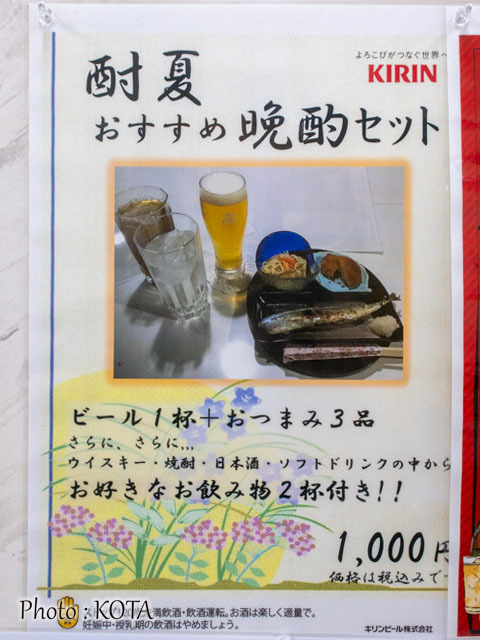 よろこびがつなぐ世界へ
KIRIN
酎夏
おすすめ晩酌セット
ビール1杯+おつまみ3品
さらに、さらに,,,
ウイスキー・焼酎・日本酒・ソフトドリンクの中から
お好きなお飲み物2杯付き!!
1,000円
価格は税込みで
満飲酒・飲酒運転。お酒は楽しく適量で。
妊娠中・授乳期の飲酒はやめましょう。
キリンビール株式会社
Photo : KOTA